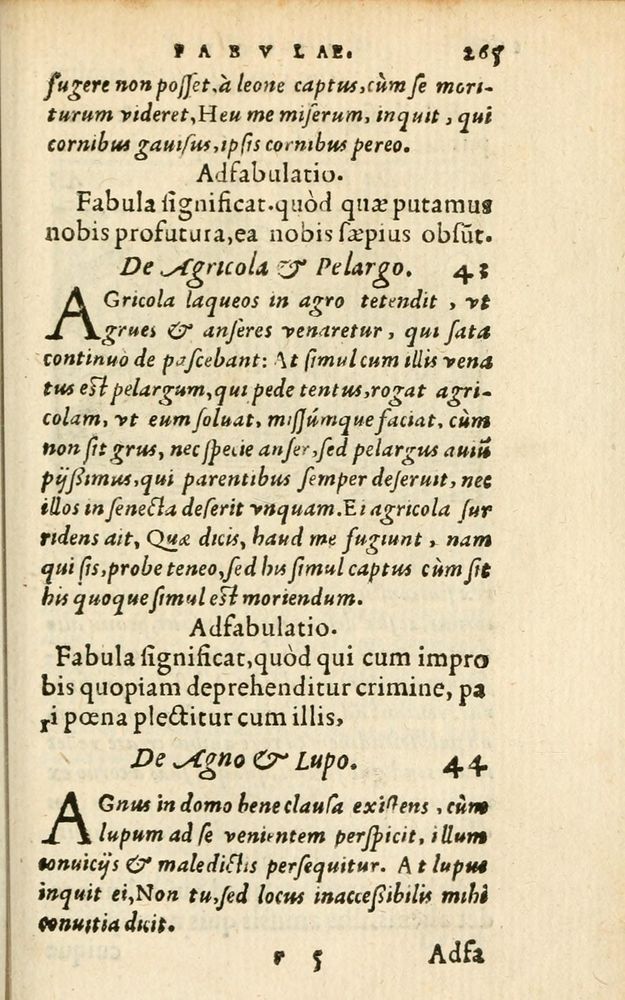 FABVLAE. 265
fugere non posset, à leone captus, cùm se mori-
turum videret, Heu me miserum, inquit, qui
cornibus gauisus, ipsis cornibus pereo.
Adfabulatio.
Fabula significat. quòd quæ putamus
nobis profutura, ea nobis sæpius obsũt.
De Agricola & Pelargo. 43
AGricola laqueos in agro tetendit, vt
grues & anseres venaretur, qui sata
continuò de pascebant: At simul cum illis vena
tus est pelargum, qui pede tentus, rogat agri-
colam, vt eum soluat, missúmque faciat, cùm
non sit grus, nec specie anser, sed pelargus auiũ
pijssimus, qui parentibus semper deseruit, nec
illos in senecta deserit vnquam. Ei agricola sur
ridens ait, Quæ dicis, haud me fugiunt, nam
qui sis, probe teneo, sed his simul captus cùm sit
his quoque simul est moriendum.
Adfabulatio.
Fabula significat, quòd qui cum impro
bis quopiam deprehenditur crimine, pa
ri pœna plectitur cum illis,
De Agno & Lupo. 44
AGnus in domo bene clausa existens, cùm
lupum ad se venientem perspicit, illum
conuicijs & maledictis persequitur. At lupus
inquit ei, Non tu, sed locus inaccessibilis mihi
conuitia dicit.
r 5 Adfa